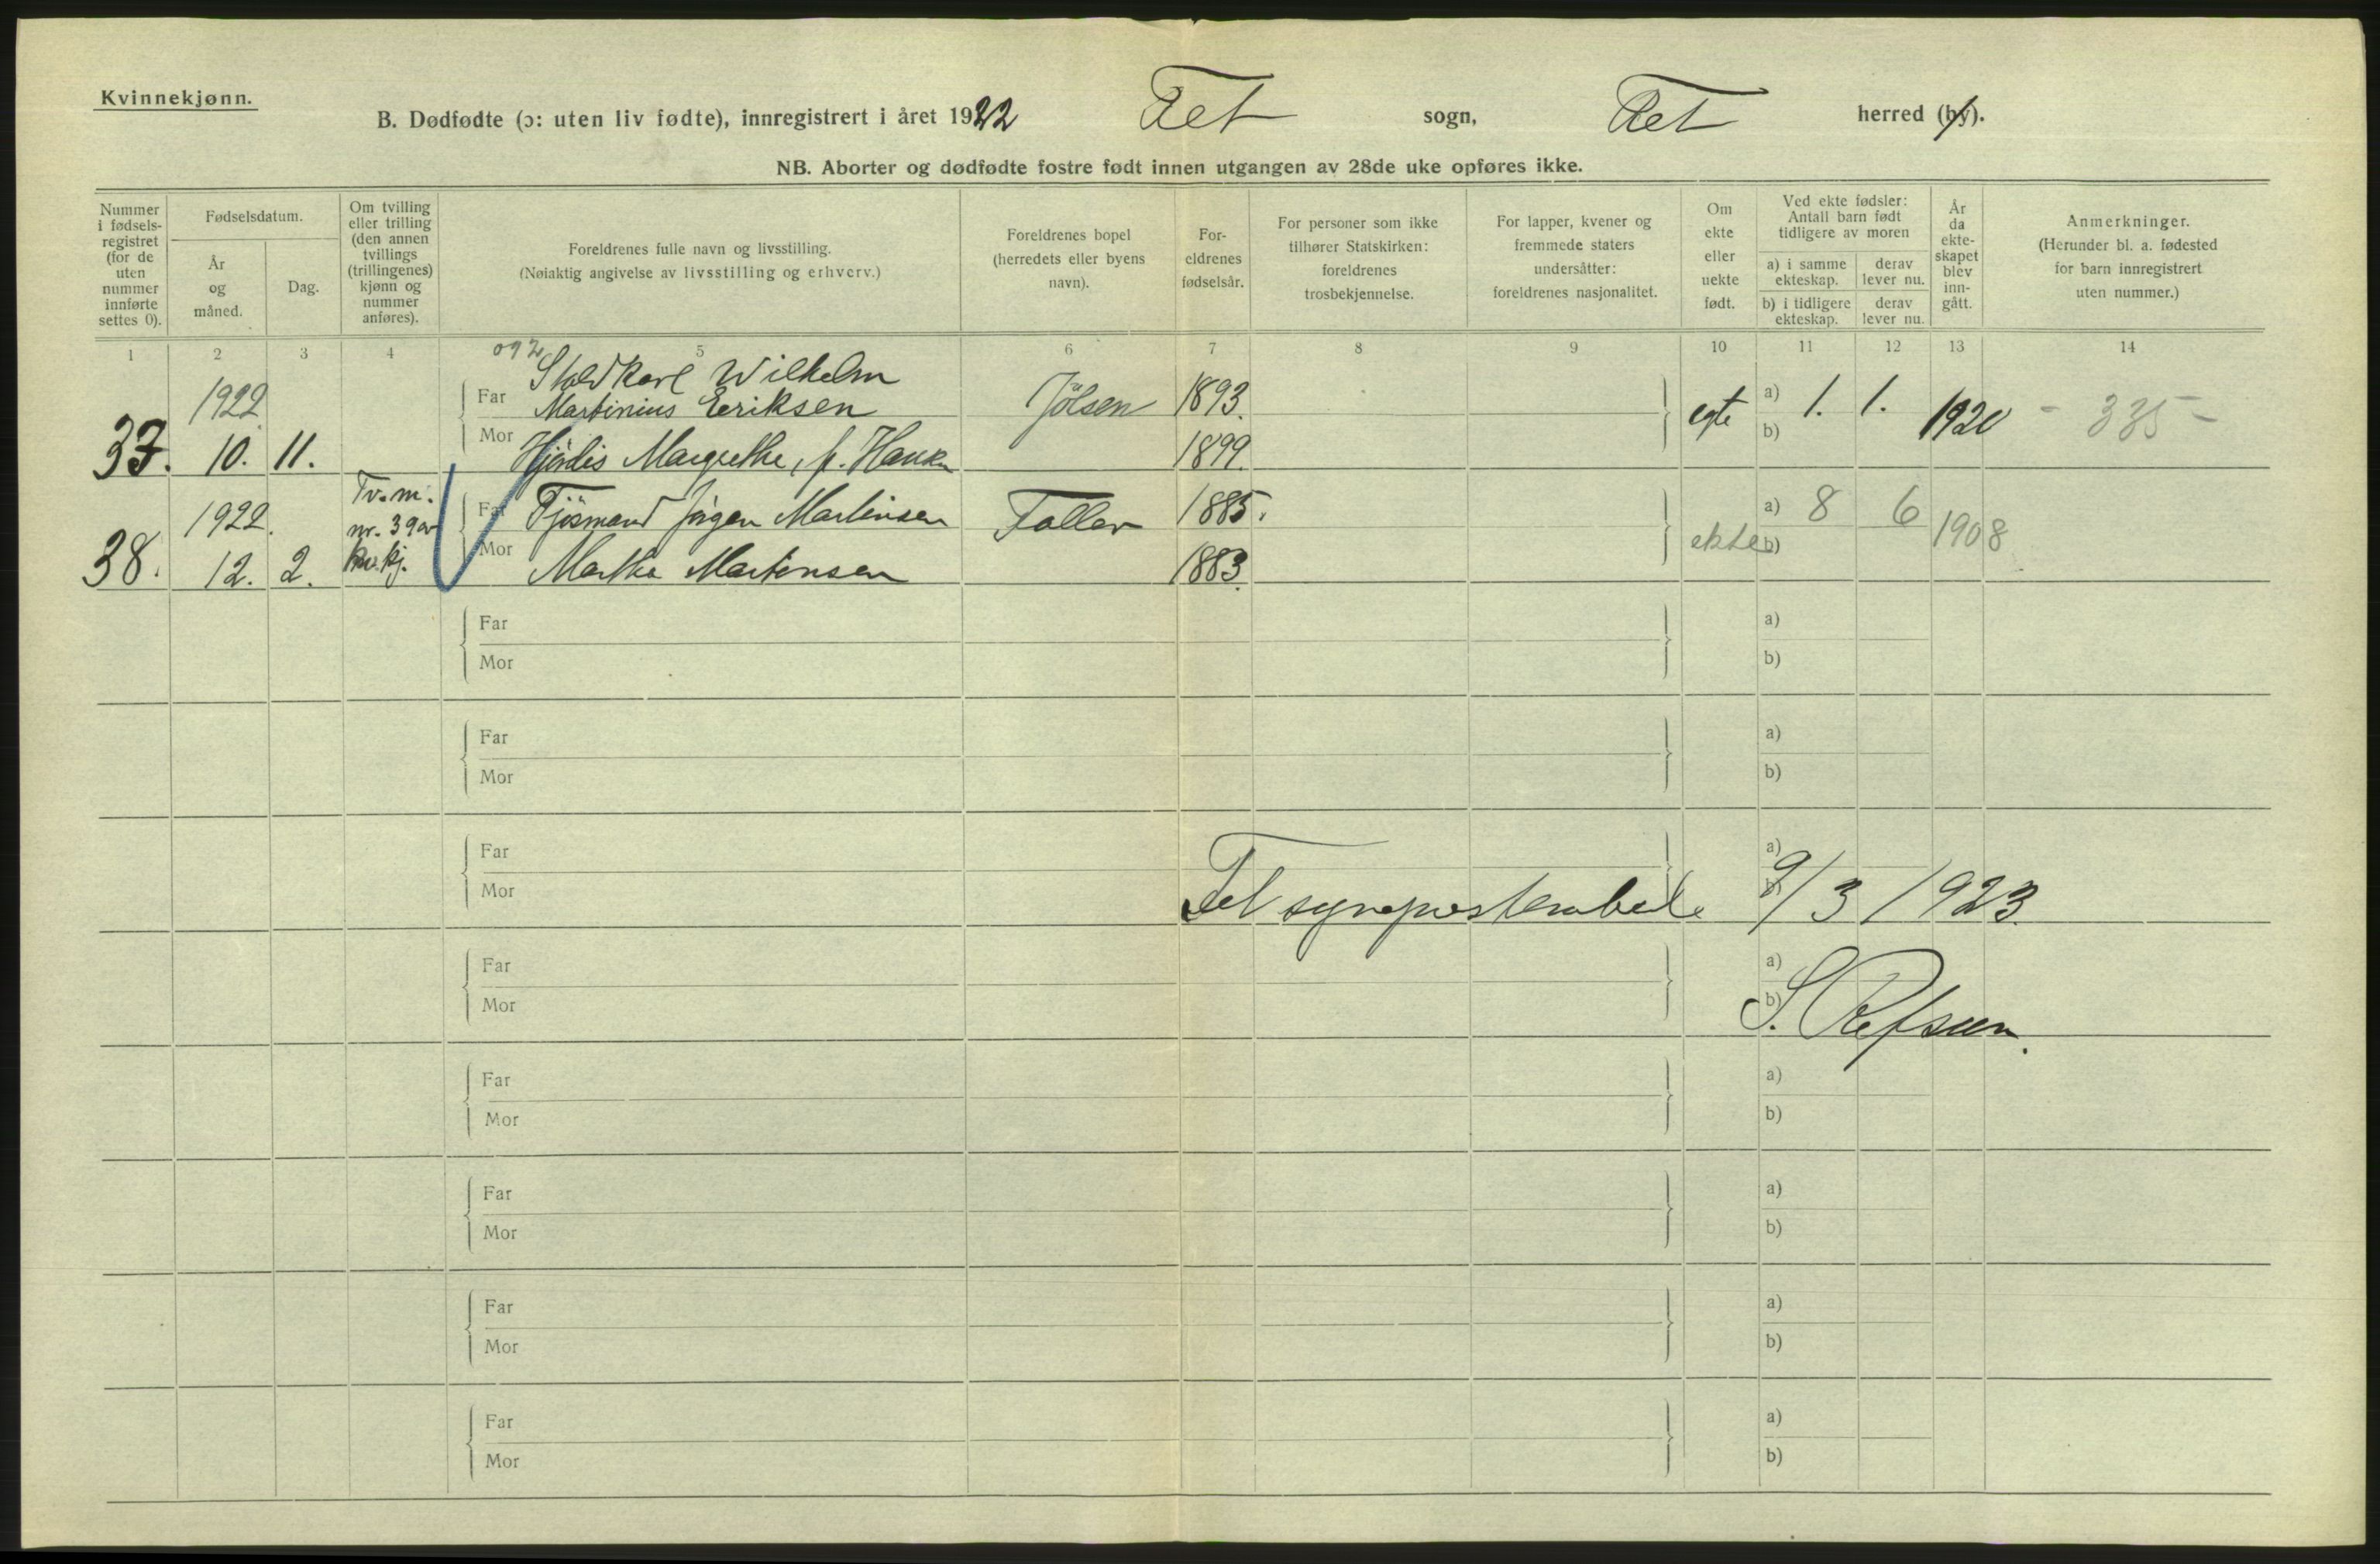 Kvinnekjønn.
B. Dødfødte (ɔ: uten liv fødte), innregistrert i året 1922 Fet sogn, Fet herred (by).
NB. Aborter og dødfødte fostre født innen utgangen av 28de uke opføres ikke.
Nummer i fødsels-registret (for de uten nummer innførte settes 0).
Fødselsdatum.
År og måned.
Dag.
Om tvilling eller trilling (den annen tvillings (trillingenes) kjønn og nummer anføres).
Foreldrenes fulle navn og livsstilling.
(Nøiaktig angivelse av livsstilling og erhverv.)
Foreldrenes bopel (herredets eller byens navn).
For-eldrenes fødselsår.
For personer som ikke tilhører Statskirken: foreldrenes trosbekjennelse.
For lapper, kvener og fremmede staters undersåtter: foreldrenes nasjonalitet.
Om ekte eller uekte født.
Ved ekte fødsler: Antall barn født tidligere av moren
a) i samme ekteskap.
derav lever nu.
b) i tidligere ekteskap.
derav lever nu.
År da ekte-skapet blev inn-gått.
Anmerkninger.
(Herunder bl. a. fødested for barn innregistrert uten nummer.)
1 2 3 4 5 6 7 8 9 10 11 12 13 14
092
Staldkarl Wilhelm
1922 Far Martinius Eriksen Jölsen 1893. egte a) 1. 1. 1920 - 335 -
37. 10. 11. Mor Hjördis Margrethe, f. 1899. b)
Tv. m.
1922. nr. 39 av Far Jörgen Martinsen Faller 1885. ekte a) 8 6 1908
38. 12. 2. kv. kj. Mor Martha Martinsen 1883. b)
Far a)
Mor b)
Far a)
Mor b)
Far a)
Mor b)
Fet sogneprestembede 9/3 1923.
Far a)
Mor b)
S. Refsum.
Far a)
Mor b)
Far a)
Mor b)
Far a)
Mor b)
Far a)
Mor b)